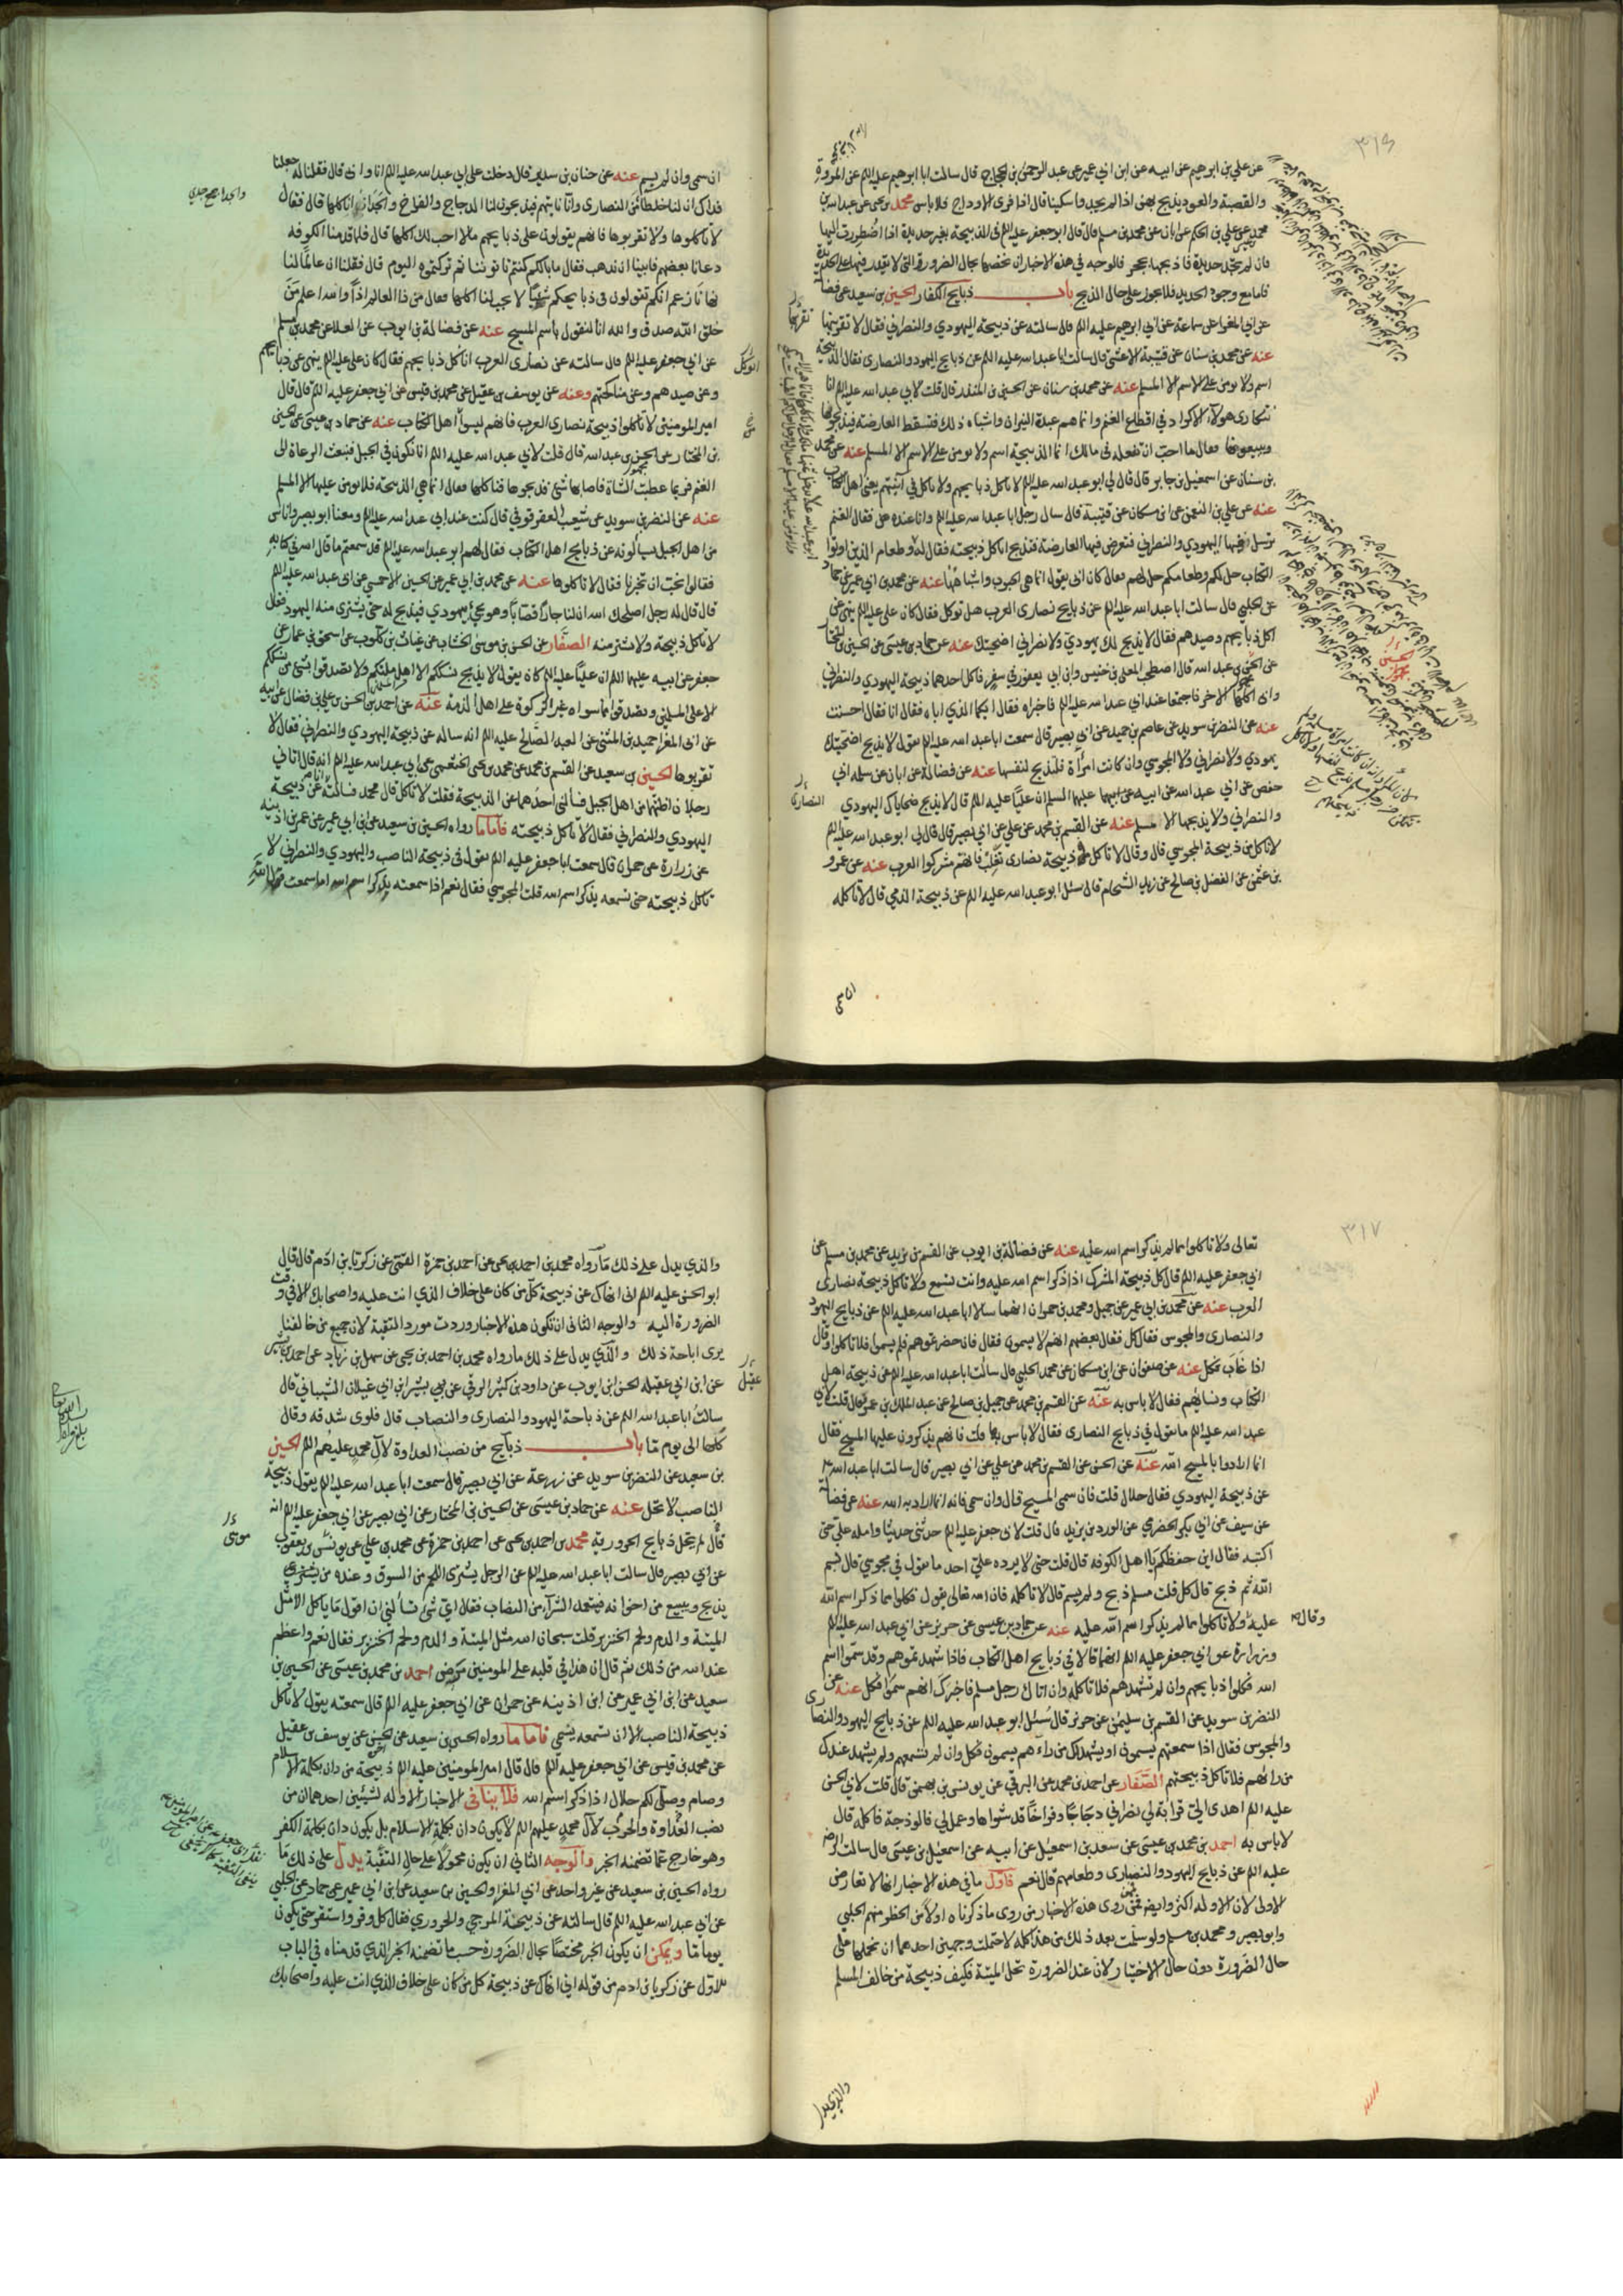 ٣١٦
عن علي بن ابرهيم عن ابيه عن ابن ابي عمير عن عبد الرحمن بن الحجاج قال سالت ابا ابرهيم عليه الم عن المروة
والقصبة والعود يذبح بهن اذا لم يجدوا سكينا قال اذا فرى الاوداج فلا باس محمد بن يحيى عن عبد الله بن
محمد عن علي بن الحكم عن ابان عن محمد بن مسلم قال قال ابو جعفر عليه الم في الذبيحة بغير حديدة اذا اضطررت اليها
فان لم تجد حديدة فاذبحها بحجر فالوجه في هذه الاخبار ان نخصها بحال الضرورة التي لا يقدر فيها على الحديدة
فاما مع وجود الحديد فلا يجوز على حال الذبح باب ذبايح الكفار الحسين بن سعيد عن فضالة
عن ابي المغرا عن سماعة عن ابي ابرهيم عليه الم قال سالته عن ذبيحة اليهودي والنصراني فقال لا تقربنها
عنه عن محمد بن سنان عن قتيبة الاعشى قال سالت ابا عبد الله عليه الم عن ذبايح اليهود والنصارى فقال الذبيحة
اسم ولا يومن على الاسم الا المسلم عنه عن محمد بن سنان عن الحسين بن المنذر قال قلت لابي عبد الله عليه الم انا
نتكارى هولاء الاكراد في اقطاع الغنم وانما هم عبدة النيران واشباه ذلك فتسقط العارضة فيذبحونها
ويبيعونها فقال ما احب ان تفعله في مالك انما الذبيحة اسم ولا يومن على الاسم الا المسلم عنه عن محمد
بن سنان عن اسمعيل بن جابر قال قال لي ابو عبد الله عليه الم لا تاكل ذبايحهم ولا تاكل في آنيتهم يعني اهل الكتاب
عنه عن علي بن النعمن عن ابن مسكان عن قتيبة قال سال رجل ابا عبد الله عليه الم وانا عنده فقال الغنم
نرسل فيها اليهودي والنصراني فتعرض فيها العارضة فتذبح اناكل ذبيحته فقال له وطعام الذين اوتوا
الكتاب حل لكم وطعامكم حل لهم فقال كان ابي يقول انما هي الحبوب واشباهها عنه عن محمد بن ابي عمير عن حماد
عن الحلبي قال سالت ابا عبد الله عليه الم عن ذبايح نصارى العرب هل توكل فقال كان علي عليه الم ينهى عن
اكل ذبايحهم وصيدهم فقال لا يذبح لك يهودي ولا نصراني اضحيتك عنه عن حماد بن عيسى عن الحسين بن المختار
عن الحسين بن عبد الله قال اصطحب المعلى بن خنيس وابن ابي يعفور في سفر فاكل احدهما ذبيحة اليهودي والنصراني
وابى اكلها الاخر فاجتمعا عند ابي عبد الله عليه الم فاخبراه فقال ايكما الذي اباه فقال انا فقال احسنت
عنه عن النضر بن سويد عن عاصم بن حميد عن ابي بصير قال سمعت ابا عبد الله عليه الم يقول لا يذبح اضحيتك
يهودي ولا نصراني ولا المجوسي وان كانت امرأة فلتذبح لنفسها عنه عن فضالة عن ابان عن سلمه ابي
حفص عن ابي عبد الله عن ابيه عليهما السلم ان عليا عليه الم قال لا يذبح ضحاياك اليهودي
والنصراني ولا يذبحها الا مسلم عنه عن القسم بن محمد عن علي عن ابي بصير قال قال لي ابو عبد الله عليه الم
لا تاكل من ذبيحة المجوسي قال وقال لا تاكل ذبيحة نصارى تغلب فانهم مشركوا العرب عنه عن عمرو
بن عثمن عن الفضل بن صالح عن زيد الشحام قال سئل ابو عبد الله عليه الم عن ذبيحة الذمي قال لا تاكله
ان سمى
ان سمى وان لم يسم عنه عن حنان بن سدير قال دخلت على ابي عبد الله عليه الم انا وابي قال فقلنا له جعلنا
فداك ان لنا خلطاء من النصارى وانا ناتيهم فيذبحون لنا الدجاج والفراخ والجداء اناكلها قال فقال
لا تاكلوها ولا تقربوها فانهم يقولون على ذبايحهم ما لا احب لك اكلها قال فلما قدمنا الكوفه
دعانا بعضهم فابينا ان نذهب فقال ما بالكم كنتم تاتوننا ثم تركتموه اليوم قال فقلنا ان عالما لنا
نهانا زعم انكم تقولون في ذبايحكم شيئا لا يحب لنا اكلها فقال من ذا العالم اذا والله اعلم من
خلق الله صدق والله انا لنقول باسم المسيح عنه عن فضالة بن ايوب عن العلا عن محمد بن مسلم
عن ابي جعفر عليه الم قال سالته عن نصارى العرب اتؤكل ذبايحهم فقال كان علي عليه الم ينهى عن ذبايحهم
وعن صيدهم وعن مناكحتهم وعنه عن يوسف بن عقيل عن محمد بن قيس عن ابي جعفر عليه الم قال قال
امير المومنين لا تاكلوا ذبيحة نصارى العرب فانهم ليسوا اهل الكتاب عنه عن حماد بن عيسى عن الحسين
بن المختار عن الحسين بن عبد الله قال قلت لابي عبد الله عليه الم انا نكون في الجبل فنبعث الرعاة الى
الغنم فربما عطبت الشاة فاصابها شئ فذبحوها فناكلها فقال انما هي الذبيحة فلا يومن عليها الا المسلم
عنه عن النضر بن سويد عن شعيب العقرقوفي قال كنت عند ابي عبد الله عليه الم ومعنا ابو بصير واناس
من اهل الجبل يسالونه عن ذبايح اهل الكتاب فقال لهم ابو عبد الله عليه الم قد سمعتم ما قال الله في كتابه
فقالوا نحب ان تخبرنا فقال لا تاكلوها عنه عن محمد بن ابي عمير عن الحسين الاحمسي عن ابي عبد الله عليه الم
قال قال له رجل اصلحك الله ان لنا جارا قصابا وهو يجئ بيهودي فيذبح له حتى يشترى منه اليهود فقال
لا تاكل ذبيحته ولا تشتر منه الصفار عن الحسن بن موسى الخشاب عن غياث بن كلوب عن اسحق بن عمار عن
جعفر عن ابيه عليهما الم ان عليا عليه الم كان يقول لا يذبح نسككم الا اهل ملتكم ولا تصدقوا بشئ من نسككم
الا على المسلمين وتصدقوا بما سواه غير الزكوة على اهل الذمة عنه عن احمد بن الحسن بن علي بن فضال عن ابيه
عن ابي المغرا حميد بن المثنى عن العبد الصالح عليه الم انه ساله عن ذبيحة اليهودي والنصراني فقال لا
تقربوها الحسين بن سعيد عن القسم بن محمد عن محمد بن يحيى الخثعمي عن ابي عبد الله عليه الم انه قال اتاني
رجلان اظنهما من اهل الجبل فسالني احدهما عن الذبيحة فقلت لا تاكل قال محمد فسالته انا عن ذبيحة
اليهودي والنصراني فقال لا تاكل ذبيحته فاما ما رواه الحسين بن سعيد عن ابن ابي عمير عن عمر بن اذينه
عن زرارة عن حمران قال سمعت ابا جعفر عليه الم يقول في ذبيحة الناصب واليهودي والنصراني لا
تاكل ذبيحته حتى تسمعه يذكر اسم الله قلت المجوسي فقال نعم اذا سمعته يذكر اسم الله اما سمعت قول الله
٣١٧
تعالى ولا تاكلوا مما لم يذكر اسم الله عليه عنه عن فضالة بن ايوب عن القسم بن بريد عن محمد بن مسلم عن
ابي جعفر عليه الم قال كل ذبيحة المشرك اذا ذكر اسم الله عليه وانت تسمع ولا تاكل ذبيحة نصارى
العرب عنه عن محمد بن ابي عمير عن جميل ومحمد بن حمران انهما سالا ابا عبد الله عليه الم عن ذبايح اليهود
والنصارى والمجوس فقال كل فقال بعضهم انهم لا يسمون فقال فان حضرتموهم فلم يسموا فلا تاكلوا وقال
اذا غاب فكل عنه عن صفوان عن ابن مسكان عن محمد الحلبي قال سالت ابا عبد الله عليه الم عن ذبيحة اهل
الكتاب ونسائهم فقال لا باس به عنه عن القسم بن محمد عن جميل بن صالح عن عبد الملك بن عمرو قال قلت لابي
عبد الله عليه الم ما تقول في ذبايح النصارى فقال لا باس بها قلت فانهم يذكرون عليها المسيح فقال
انما ارادوا بالمسيح الله عنه عن الحسن عن القسم بن محمد عن علي عن ابي بصير قال سالت ابا عبد الله
عن ذبيحة اليهودي فقال حلال قلت فان سمى المسيح قال وان سمى فانه انما اراد به الله عنه عن فضالة
عن سيف عن ابي بكر الحضرمي عن الورد بن يزيد قال قلت لابي جعفر عليه الم حدثني حديثا وامله علي حتى
اكتبه فقال اين حفظكم يا اهل الكوفه قال قلت حتى لا يرده علي احد ما تقول في مجوسي قال بسم
الله ثم ذبح قال كل قلت مسلم ذبح ولم يسم قال لا تاكله فان الله تعالى يقول فكلوا مما ذكر اسم الله
وقال
عليه ولا تاكلوا مما لم يذكر اسم الله عليه عنه عن حماد بن عيسى عن حريز عن ابي عبد الله عليه الم
وزرارة عن ابي جعفر عليه الم انهما قالا في ذبايح اهل الكتاب فاذا شهدتموهم وقد سموا اسم
الله فكلوا ذبايحهم وان لم تشهدهم فلا تاكله وان اتاك رجل مسلم فاخبرك انهم سموا فكل عنه عن
النضر بن سويد عن القسم بن سليمن عن حريز قال سئل ابو عبد الله عليه الم عن ذبايح اليهود والنصارى
والمجوس فقال اذا سمعتهم يسمون او يشهد لك من راهم يسمون فكل وان لم تسمعهم ولم يشهد عندك
من راهم فلا تاكل ذبيحتهم الصفار عن احمد بن محمد عن البرقي عن يونس بن بهمن قال قلت لابي الحسن
عليه الم اهدى الي قرابة لي نصراني دجاجا وفراخا قد شواها وعمل لي فالوذجة فاكله قال
لا باس به احمد بن محمد بن عيسى عن سعد بن اسمعيل عن ابيه عن اسمعيل بن عيسى قال سالت الرضا
عليه الم عن ذبايح اليهود والنصارى وطعامهم قال نعم فاول ما في هذه الاخبار انها لا تعارض
الاولى لان الاوله اكثر وايضا فمن روى هذه الاخبار من روى ما ذكرناه اولا من الحظر منهم الحلبي
وابو بصير ومحمد بن مسلم ولو سلمت بعد ذلك من هذا كله لاحتملت وجهين احدهما ان نحملها على
حال الضرورة دون حال الاختيار لان عند الضرورة تحل الميتة فكيف ذبيحة من خالف المسلم
والذي يدل
والذي يدل على ذلك ما رواه محمد بن احمد بن يحيى عن احمد بن حمزة القمي عن زكريا بن ادم قال قال
ابو الحسن عليه الم اني انهاك عن ذبيحة كل من كان على خلاف الذي انت عليه واصحابك الا في وقت
الضرورة اليه والوجه الثاني ان تكون هذه الاخبار وردت مورد التقية لان جميع من خالفنا
يرى اباحة ذلك والذي يدل على ذلك ما رواه محمد بن احمد بن يحيى عن سهل بن زياد عن احمد بن بشير
عن ابن ابي عقيله الحسن ابن ايوب عن داود بن كثير الرقي عن بشر بن ابي غيلان الشيباني قال
سالت ابا عبد الله الم عن ذباحة اليهود والنصارى والنصاب قال فلوى شدقه وقال
كلها الى يوم ما باب ذبايح من نصب العداوة لآل محمد عليهم الم الحسين
بن سعيد عن النضر بن سويد عن زرعة عن ابي بصير قال سمعت ابا عبد الله عليه الم يقول ذبيحة
الناصب لا تحل عنه عن حماد بن عيسى عن الحسين بن المختار عن ابي بصير عن ابي جعفر عليه الم انه
قال لم تحل ذبايح الحرورية محمد بن احمد بن يحيى عن احمد بن حمزة عن محمد بن علي عن يونس بن يعقوب
عن ابي بصير قال سالت ابا عبد الله عليه الم عن الرجل يشترى اللحم من السوق وعنده من يشتري
يذبح ويبيع من اخوانه فيتعمد الشراء من النصاب فقال اي شئ تسألني ان اقول ما ياكل الا مثل
الميتة والدم ولحم الخنزير قلت سبحان الله مثل الميتة والدم ولحم الخنزير فقال نعم واعظم
عند الله من ذلك ثم قال ان هذا في قلبه على المومنين مرض احمد بن محمد بن عيسى عن الحسين بن
سعيد عن ابن ابي عمير عن ابن اذينه عن حمران عن ابي جعفر عليه الم قال سمعته يقول لا تاكل
ذبيحة الناصب الا ان تسمعه يسمى فاما ما رواه الحسين بن سعيد عن الحسن عن يوسف بن عقيل
عن محمد بن قيس عن ابي جعفر عليه الم قال قال امير المومنين عليه الم ذبيحة من دان بكلمة الاسلام
وصام وصلى لكم حلال اذا ذكر اسم الله فلا ينافى الاخبار الاوله لشيئين احدهما ان من
نصب العداوة والحرب لآل محمد عليهم الم لا يكون دان بكلمة الاسلام بل يكون دان بكلمة الكفر
وهو خارج عما تضمنه الخبر والوجه الثاني ان يكون محمولا على حال التقية يدل على ذلك ما
رواه الحسين بن سعيد عن غير واحد عن ابي المغرا والحسين بن سعيد عن ابن ابي عمير عن حماد عن الحلبي
عن ابي عبد الله عليه الم قال سالته عن ذبيحة المرجي والحروري فقال كل وقر واستقر حتى يكون
يوما ما ويمكن ان يكون الخبر مختصا بحال الضرورة حسب ما تضمنه الخبر الذي قدمناه في الباب
الاول عن زكريا بن ادم من قوله اني انهاك عن ذبيحة كل من كان على خلاف الذي انت عليه واصحابك